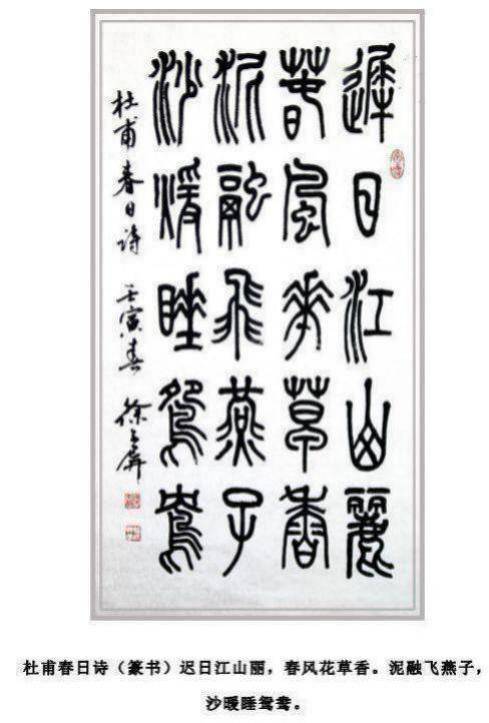 遲日江山麗
春風花草香
泥融飛燕子
沙暖睡鴛鴦
杜甫春日诗 壬寅春 徐
杜甫春日诗（篆书）迟日江山丽，春风花草香。泥融飞燕子，
沙暖睡鸳鸯。